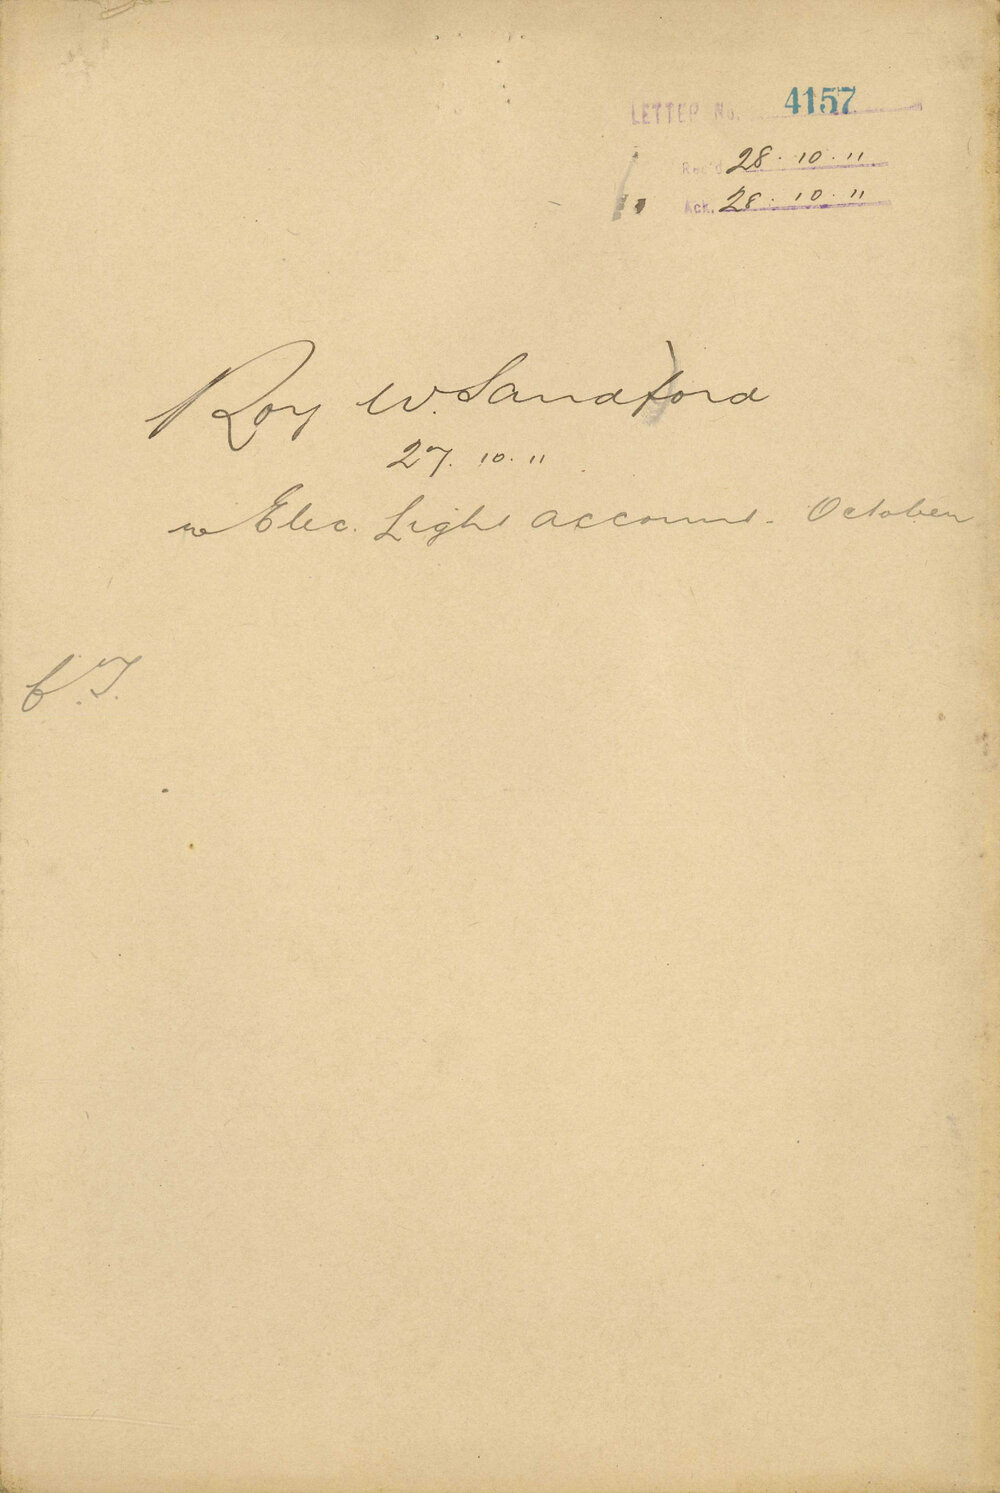 LETTER No. 4157
Rec'd 28.10.11
Ack. 28.10.11
Roy W. Sandford
27.10.11
re Elec. Light account. October
C.T.